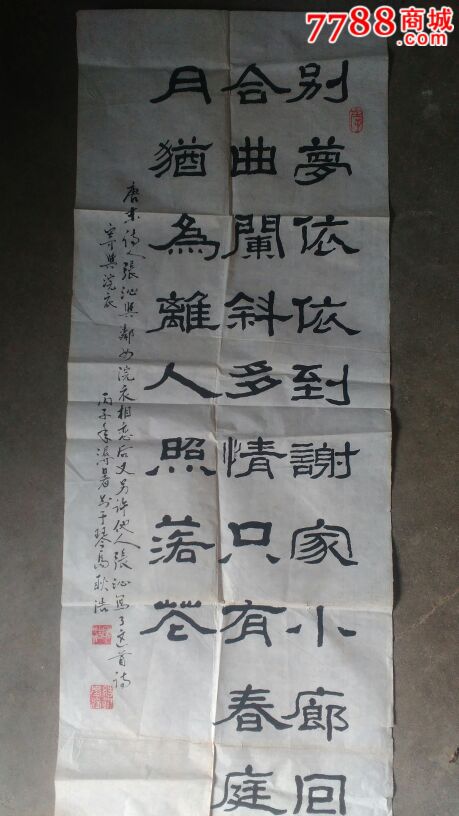 7788商城
别夢依依到謝家小廊回
合曲闌斜多情只有春庭
月猶為離人照落花
唐末詩人張沁與鄰女浣衣相恋后女另许他人張沁寫了这首诗
寄與浣衣
丙子年 暑 于琴島 耿浩